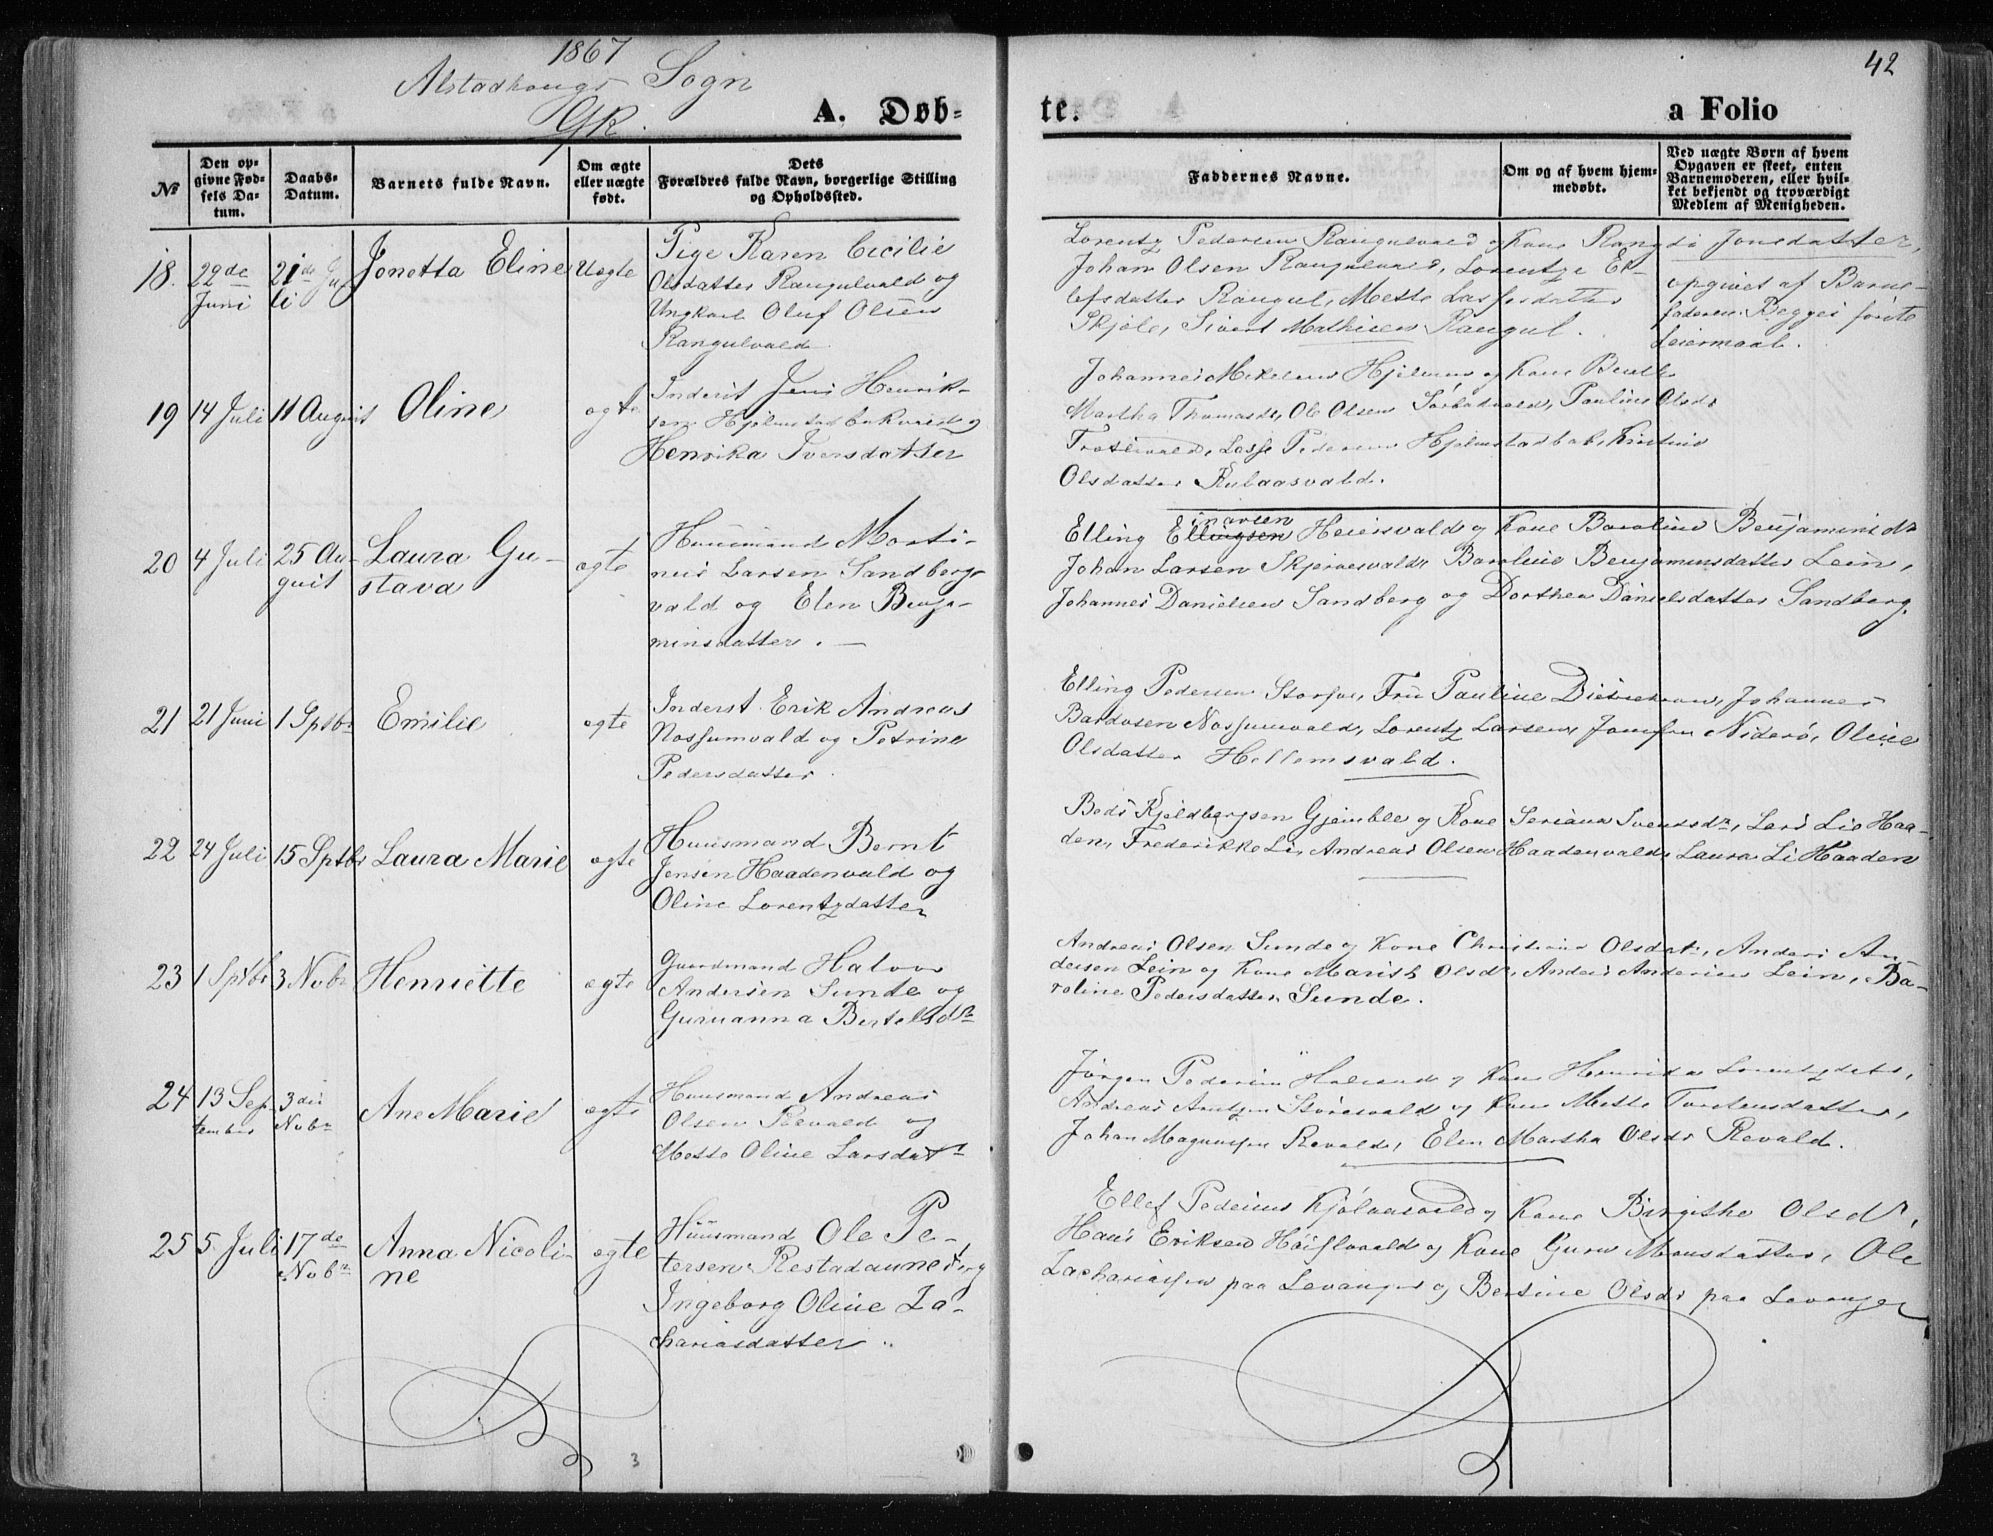 1867
Alstadhougs Sogn
GK.
42
A. Døb-
te.
a Folio
№
Den op-
givne Fød-
sels Da-
tum.
Daabs-
Datum.
Barnets fulde Navn.
Om ægte
eller uægte
født.
Dets
Forældres fulde Navn, borgerlige Stilling
og Opholdssted.
Faddernes Navne.
Om og af hvem hjem-
medøbt.
Ved uægte Børn af hvem
Opgaven er skeet, enten
Barnemoderen, eller hvil-
ket bekjendt og troværdigt
Medlem af Menigheden.
18.
29de
Juni
21de Ju
li
Jonetta Eline
Uægte
Pige Karen Cecilie
Olsdatter Rangulvald og
Ungkarl Oluf Olsen
Rangulvald
Lorentz Pedersen Rangulvald og Kone Jonsdatter,
Johan Olsen Rangulvald, Lorentze El-
lefsdatter Rangul, Mette Lassesdatter
Skjøle, Sivert Mathisen Rangul.
opgivet af Barne-
faderen. Begges første
Leiermaal.
19
14 Juli
11 August
Oline
ægte
Inderst Jens Henrik-
sen og
Henrika Iversdatter
Johannes Mikelsen og Kone
Martha Ole Olsen Pauline Olsdr
Lasse Pedersen
Olsdatter
20
4 Juli
25 Au-
gust
Laura Gu-
stava
ægte
Huusmand Morti-
nus Larsen Sandberg-
vald og Elen Benja-
minsdatter. —
inarsen
Elling Ellingsen Heiersvald og Kone Baroline Benjaminsdr
Johan Larsen Skjervesvald, Baroline Benjaminsdatter Lein,
Johannes Danielsen Sandberg og Dorthea Danielsdatter Sandberg.
21
21 Juni
1 Sptbr
Emilie
ægte
Inderst Erik Andreas
Nossumvald og Petrine
Pedersdatter.
Elling Pedersen Fru Pauline Johannes
Bardosen Nossumvald, Lorentz Larsen, Jomfru Niderø, Oline
Olsdatter Hellemsvald.
22
24 Juli
15 Sptbr
Laura Marie
ægte
Huusmand Bernt
Jensen Haadenvald og
Oline Lorentzdatter
Kjeldbergsen Gjemble og Kone Seriana Lars Lie Haa-
den, Frederikke Li, Andreas Olsen Haadenvald, Laura Li Haaden
23
1 Sptbr
3 Nvbr
Henriette
ægte
Gaardmand Halvor
Andersen Sunde og
Guruanna Bertelsdr
Andreas Olsen Sunde og Kone Christiana Olsdatr, Anders An-
dersen Lein og Kone Marit Olsdr, Anders Andersen Lein, Ba-
roline Pedersdatter Sunde.
24
13 Sep
tember
3die
Nvbr
Ane Marie
ægte
Huusmand Andreas
Olsen Revald og
Mette Oline Larsdatr
Jørgen Pedersen og Kone Henrika Lorentzdatr,
Andreas og Kone Mette Torstensdatter,
Johan Magnussen Revald, Elen Martha Olsdr Revald.
25
5. Juli
17de
Nvbr
Anna Nicoli-
ne
ægte
Huusmand Ole Pe-
tersen Restadaunet og
Ingeborg Oline Za-
chariasdatter
Ellef Pedersen og Kone Birgithe Olsdr,
Hans Eriksen og Kone Guru Monsdatter, Ole
Zachariassen paa Levanger og Bertine Olsdr paa Levanger
3